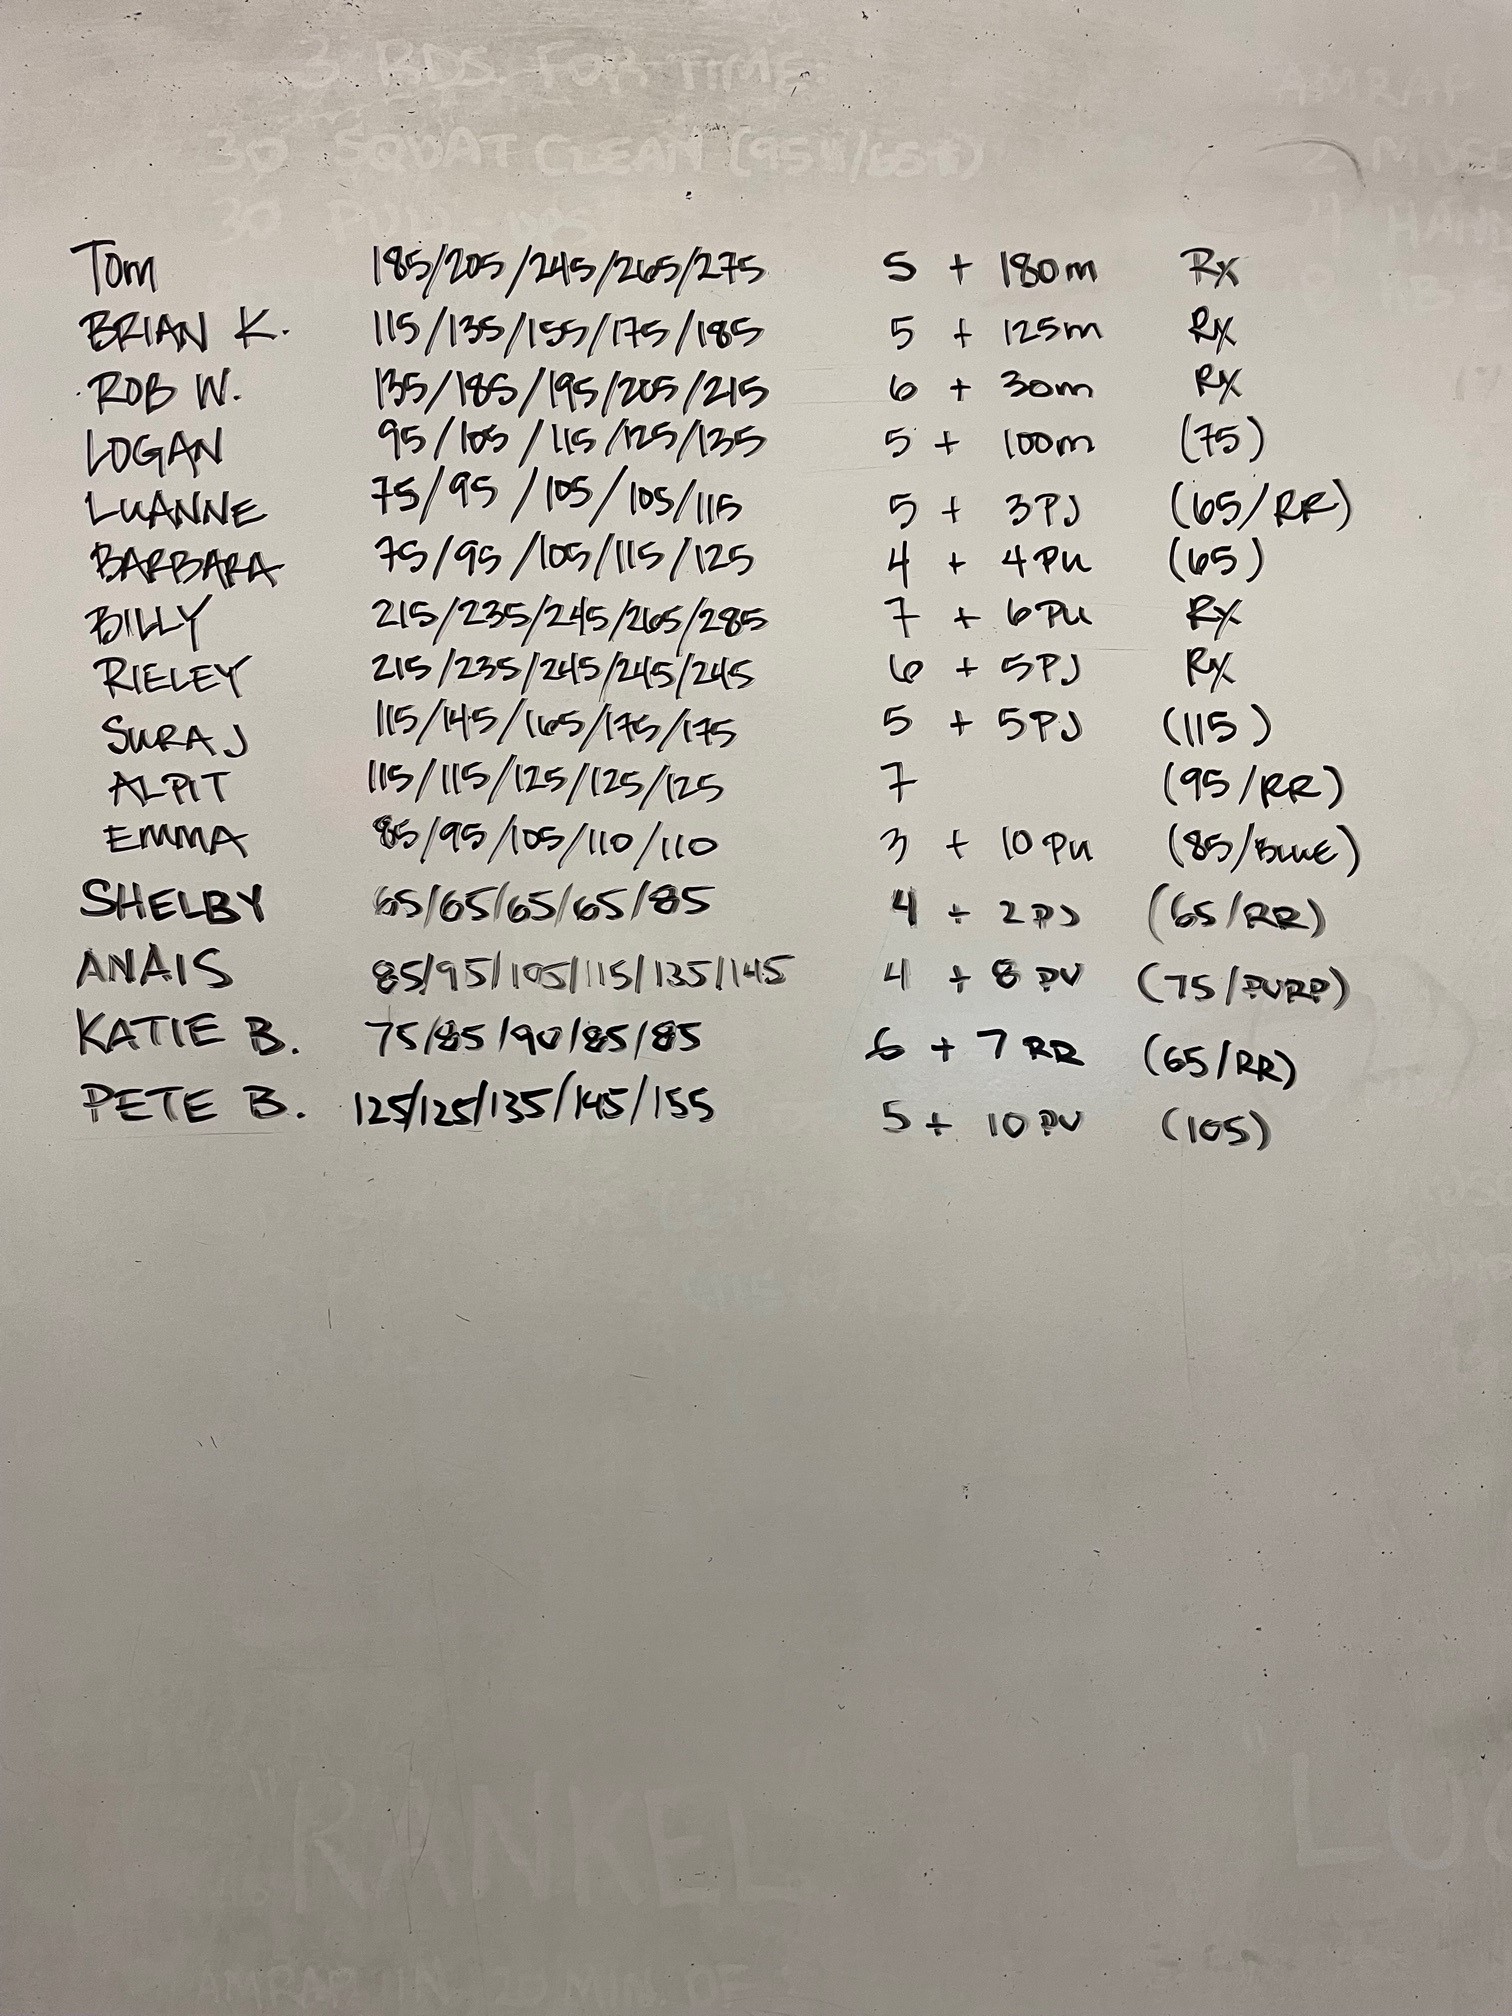 3 RDS. FOR TIME:
30 SQUAT CLEAN (95#/65#)
30 PULL-UPS
AMRAP
Tom 185/205/245/265/275 5 + 180m Rx
BRIAN K. 115/135/155/175/185 5 + 125m Rx
ROB W. 135/185/195/205/215 6 + 30m Rx
LOGAN 95/105/115/125/135 5 + 100m (75)
LUANNE 75/95/105/105/115 5 + 3PJ (65/RR)
BARBARA 75/95/105/115/125 4 + 4PU (65)
BILLY 215/235/245/265/285 7 + 6PU Rx
RIELEY 215/235/245/245/245 6 + 5PJ Rx
SURAJ 115/145/165/175/175 5 + 5PJ (115)
ALPIT 115/115/125/125/125 7 (95/RR)
EMMA 85/95/105/110/110 3 + 10 PU (85/BLUE)
SHELBY 65/65/65/65/85 4 + 2PJ (65/RR)
ANAIS 85/95/105/115/135/145 4 + 8 PU (75/PURP)
KATIE B. 75/85/90/85/85 6 + 7 RR (65/RR)
PETE B. 125/125/135/145/155 5 + 10 PU (105)
"RANKEL"
AMRAP IN 20 MIN. OF